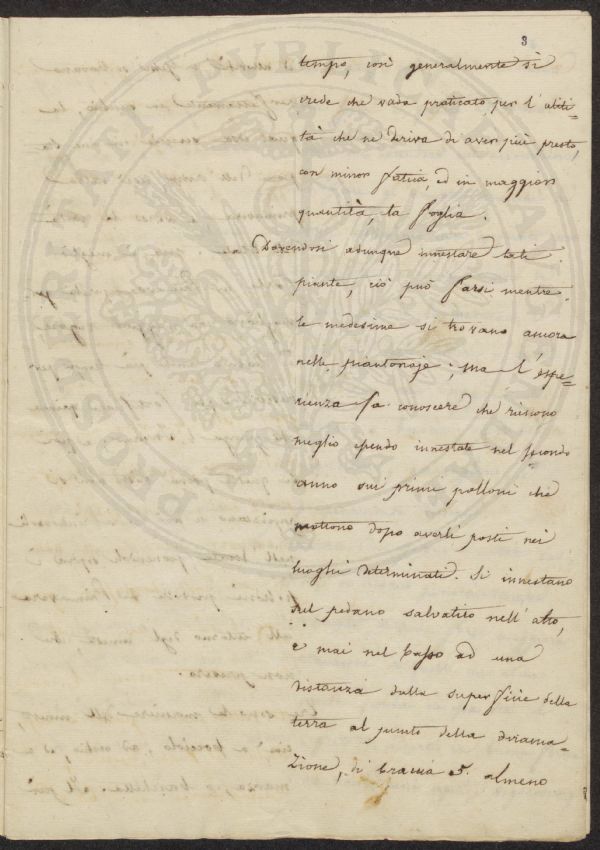 3
tempo, così generalmente si
crede che vada praticato per l'utili=
tà che ne deriva di aver più presto,
con minor fatica, ed in maggior
quantità, la foglia.
Dovendosi adunque innestare tali
piante, ciò può farsi mentre
le medesime si trovano ancora
nelle piantonaje; ma l'espe=
rienza fa conoscere che riescono
meglio essendo innestate nel secondo
anno sui primi polloni che
mettono dopo averli posti nei
luoghi determinati. Si innestano
nel pedano salvatico nell'alto,
e mai nel basso ad una
distanza dalla superficie della
terra al punto della dirama=
zione, di braccia 5. almeno
PROSPERITATI PUBLICAE AUGENDAE